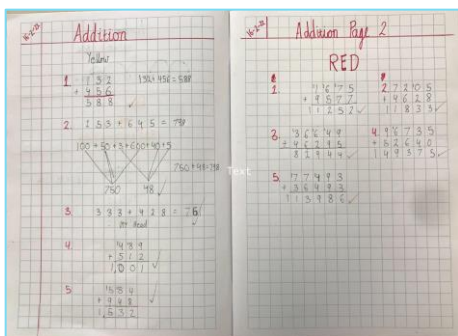 16-2-18
Addition
Yellow
1. 132
+ 456
588
132 + 456 = 588
2. 153 + 645 = 798
100 + 50 + 3 + 600 + 40 + 5
750 + 48 = 798
750 48
3. 333 + 428 = 761
4. 489
+ 512
1,001
5. 584
+ 948
1,532
16-2-18
Addition Page 2
RED
1. 1675
+ 9577
11252
2. 7205
+ 4628
11833
3. 36649
+ 46295
82944
4. 96735
+ 52640
149375
5. 77493
+ 36493
113986
Text